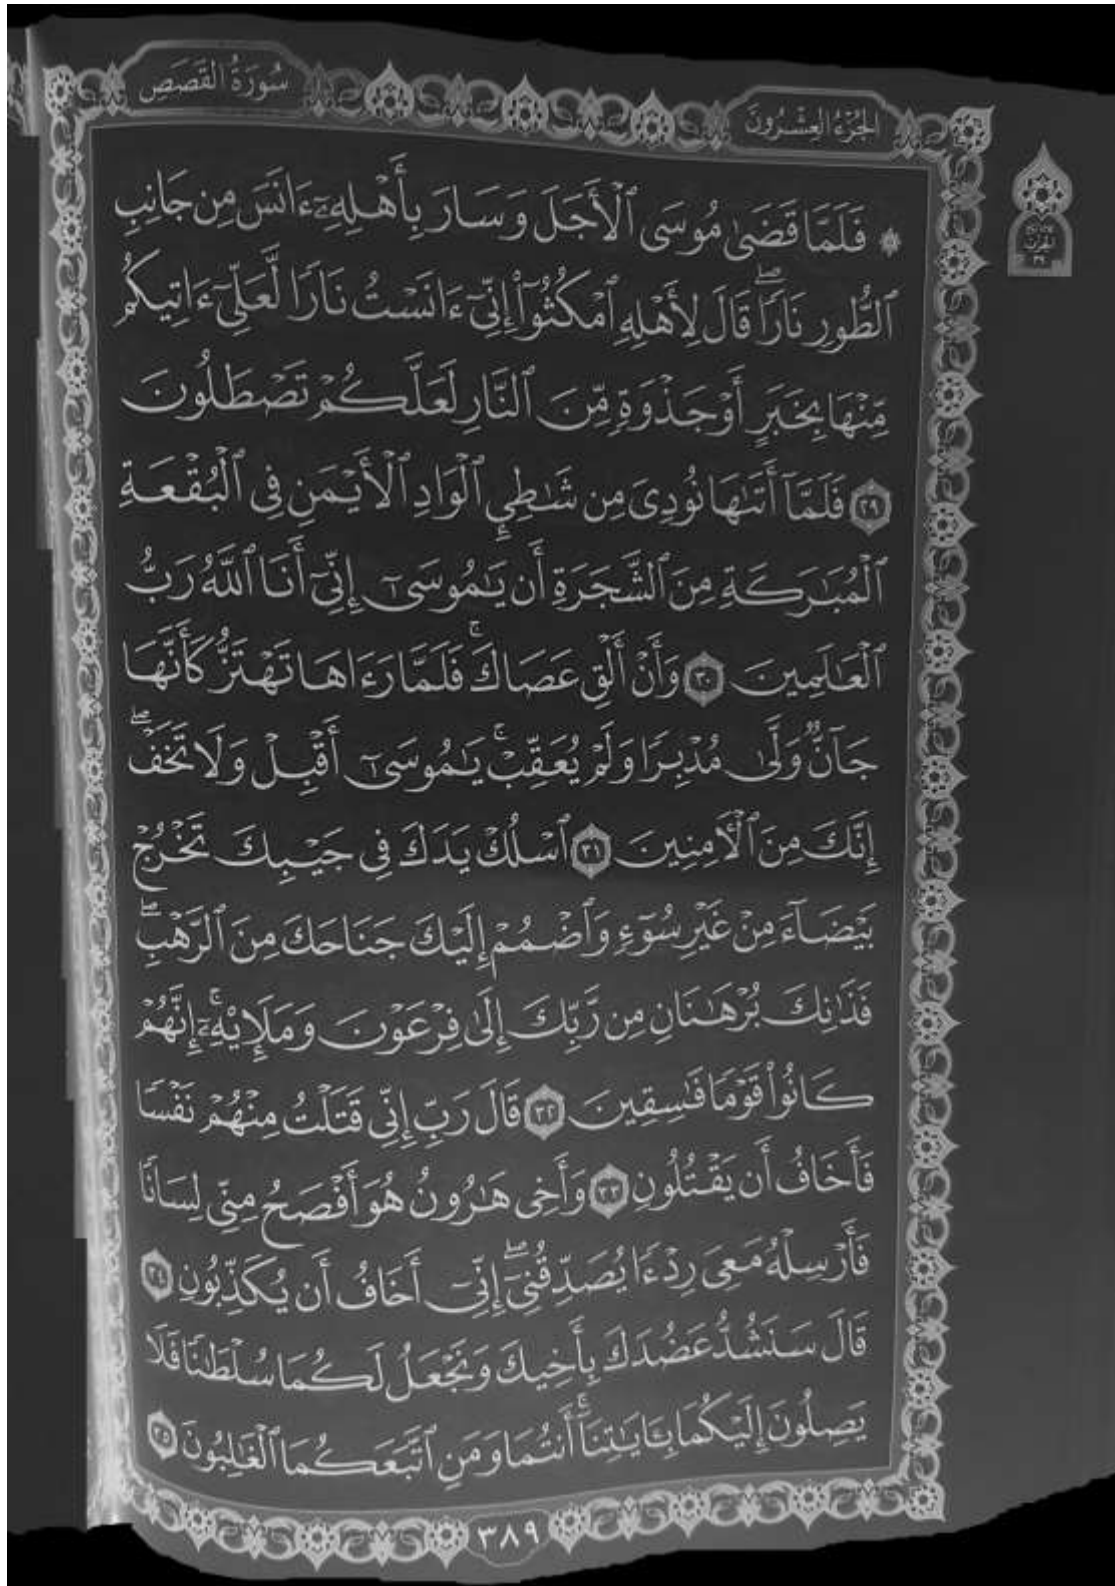 سُورَةُ القَصَصِ
الجُزْءُ العِشْرُونَ
۞ فَلَمَّا قَضَىٰ مُوسَى ٱلْأَجَلَ وَسَارَ بِأَهْلِهِۦٓ ءَانَسَ مِن جَانِبِ
ٱلطُّورِ نَارًاۖ قَالَ لِأَهْلِهِ ٱمْكُثُوٓاْ إِنِّيٓ ءَانَسْتُ نَارًا لَّعَلِّيٓ ءَاتِيكُم
مِّنْهَا بِخَبَرٍ أَوْ جَذْوَةٍ مِّنَ ٱلنَّارِ لَعَلَّكُمْ تَصْطَلُونَ
٢٩ فَلَمَّآ أَتَىٰهَا نُودِيَ مِن شَٰطِيِٕ ٱلْوَادِ ٱلْأَيْمَنِ فِي ٱلْبُقْعَةِ
ٱلْمُبَٰرَكَةِ مِنَ ٱلشَّجَرَةِ أَن يَٰمُوسَىٰٓ إِنِّيٓ أَنَا ٱللَّهُ رَبُّ
ٱلْعَٰلَمِينَ ٣٠ وَأَنْ أَلْقِ عَصَاكَۚ فَلَمَّا رَءَاهَا تَهْتَزُّ كَأَنَّهَا
جَآنٌّ وَلَّىٰ مُدْبِرًا وَلَمْ يُعَقِّبْۚ يَٰمُوسَىٰٓ أَقْبِلْ وَلَا تَخَفْۖ
إِنَّكَ مِنَ ٱلْأٓمِنِينَ ٣١ ٱسْلُكْ يَدَكَ فِي جَيْبِكَ تَخْرُجْ
بَيْضَآءَ مِنْ غَيْرِ سُوٓءٍ وَٱضْمُمْ إِلَيْكَ جَنَاحَكَ مِنَ ٱلرَّهْبِۖ
فَذَٰنِكَ بُرْهَٰنَانِ مِن رَّبِّكَ إِلَىٰ فِرْعَوْنَ وَمَلَإِيْهِۦٓۚ إِنَّهُمْ
كَانُواْ قَوْمًا فَٰسِقِينَ ٣٢ قَالَ رَبِّ إِنِّي قَتَلْتُ مِنْهُمْ نَفْسًا
فَأَخَافُ أَن يَقْتُلُونِ ٣٣ وَأَخِي هَٰرُونُ هُوَ أَفْصَحُ مِنِّي لِسَانًا
فَأَرْسِلْهُ مَعِيَ رِدْءًا يُصَدِّقُنِيٓۖ إِنِّيٓ أَخَافُ أَن يُكَذِّبُونِ ٣٤
قَالَ سَنَشُدُّ عَضُدَكَ بِأَخِيكَ وَنَجْعَلُ لَكُمَا سُلْطَٰنًا فَلَا
يَصِلُونَ إِلَيْكُمَا بِـَٔايَٰتِنَآۚ أَنتُمَا وَمَنِ ٱتَّبَعَكُمَا ٱلْغَٰلِبُونَ ٣٥
٣٨٩